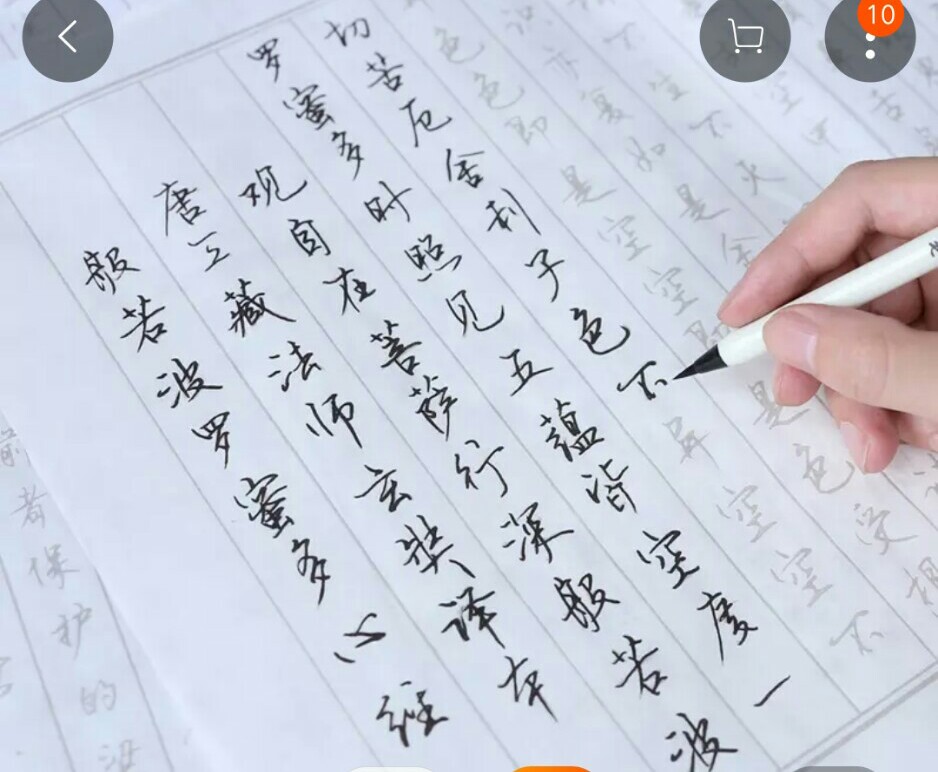 10
般若波罗蜜多心经
唐三藏法师玄奘译本
观自在菩萨行深般若波
罗蜜多时照见五蕴皆空度一
切苦厄舍利子色不异空空不
色色即是空空即是色受想
识亦复如是舍
不生不灭
空中
者保护的没